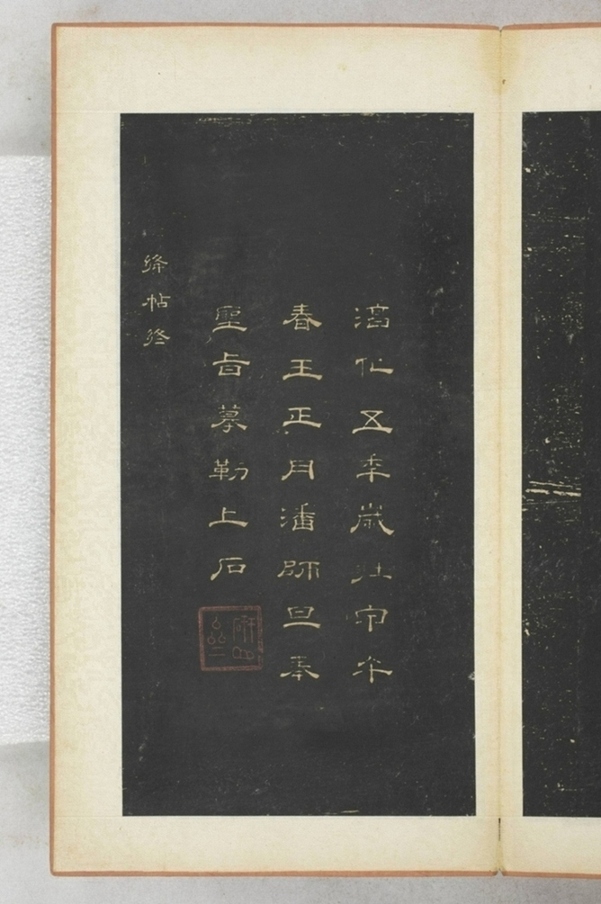 淳化五季歲在甲午
春王正月潘師旦奉
聖旨摹勒上石
絳帖終